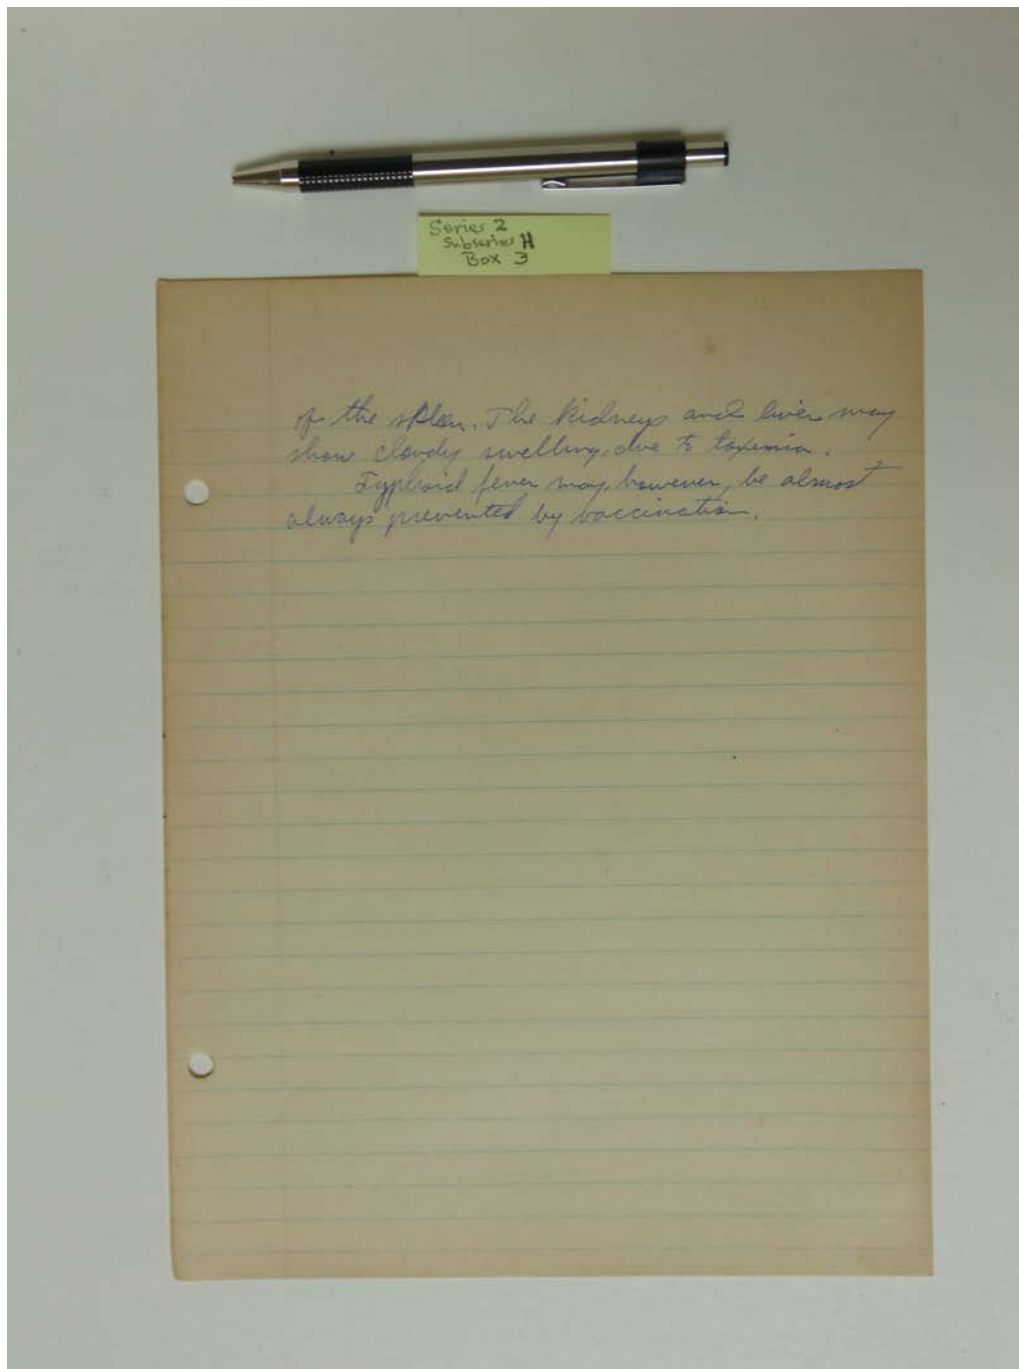 Series 2
Subseries H
Box 3
of the spleen. The kidneys and liver may
show cloudy swelling due to toxemia.
Typhoid fever may, however, be almost
always prevented by vaccination.